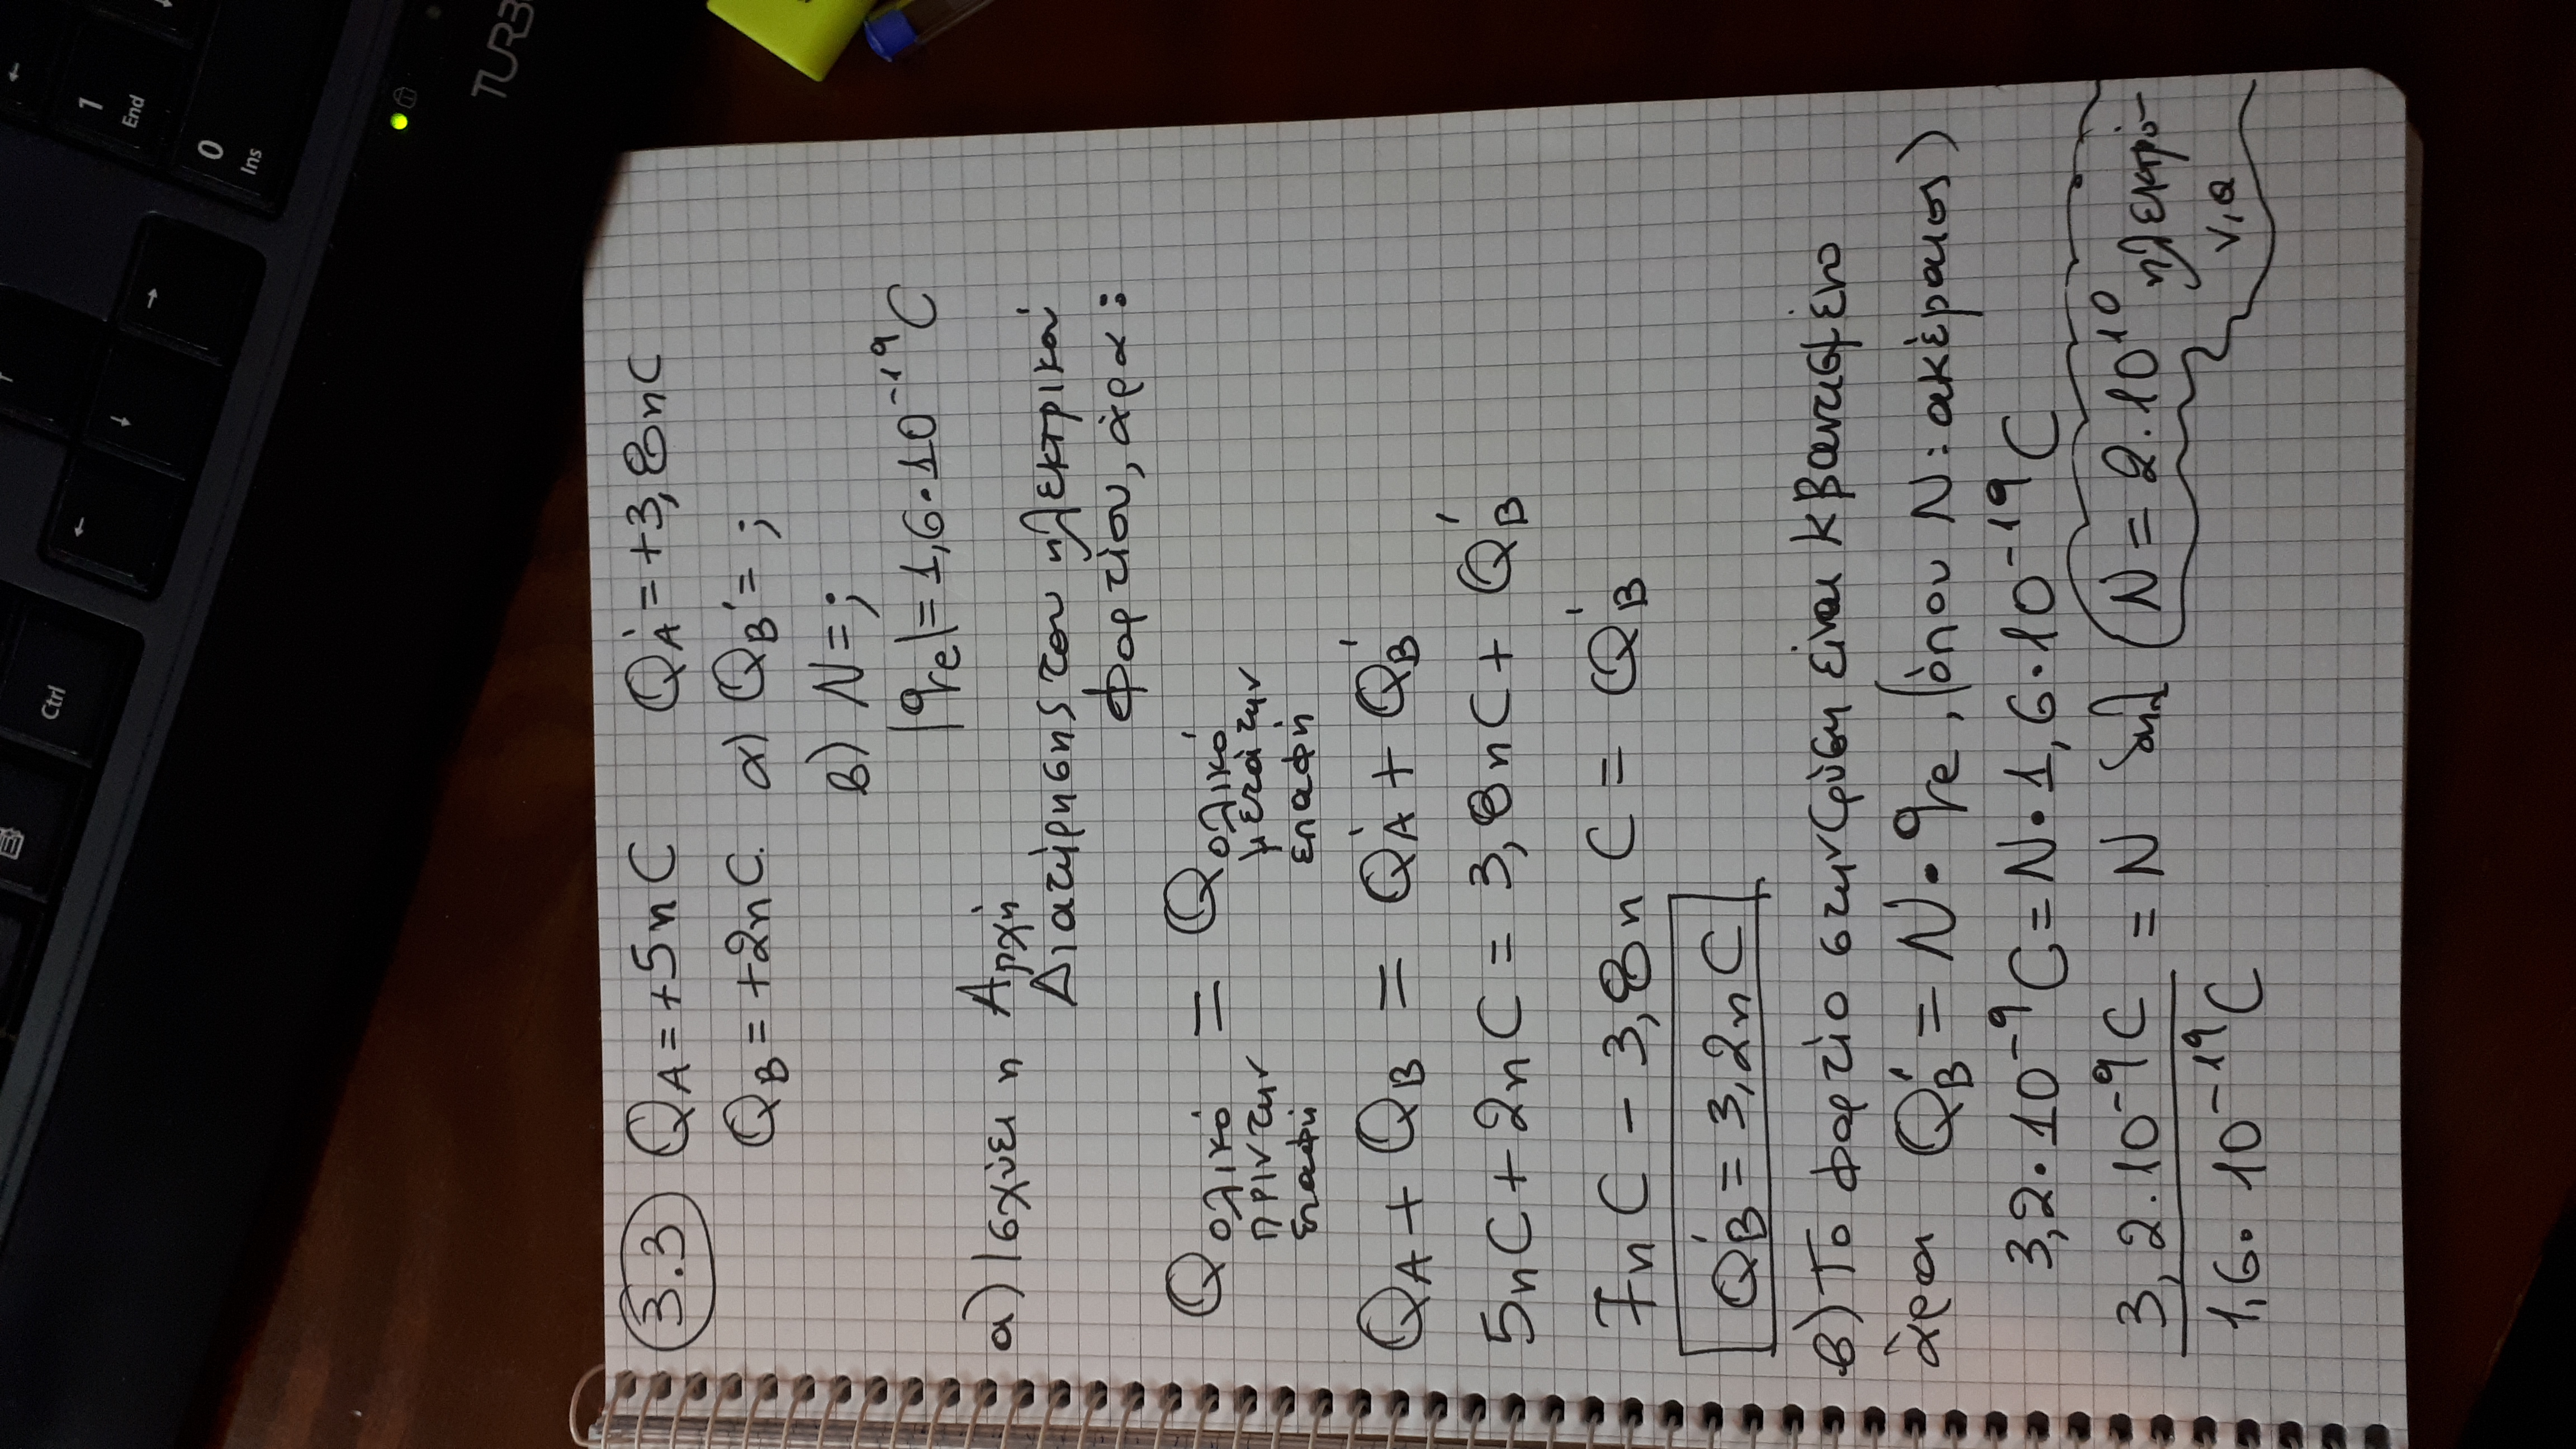 3.3 QA = +5nC Q'A = +3,8nC
QB = +2nC. α) Q'B = ;
β) N = ;
|qe| = 1,6·10⁻¹⁹C
α) Ισχύει η Αρχή
Διατήρησης του ηλεκτρικού
φορτίου, άρα :
Qολικό πριν την επαφή = Qολικό μετά την επαφή
QA + QB = Q'A + Q'B
5nC + 2nC = 3,8nC + Q'B
7nC - 3,8nC = Q'B
Q'B = 3,2nC
β) Το φορτίο στην φύση είναι κβαντισμένο
άρα Q'B = N·qe, (όπου N: ακέραιος)
3,2·10⁻⁹C = N·1,6·10⁻¹⁹C
3,2·10⁻⁹C / 1,6·10⁻¹⁹C = N δηλ N = 2·10¹⁰ ηλεκτρό-
νια
TURB
1
End
0
Ins
Ctrl